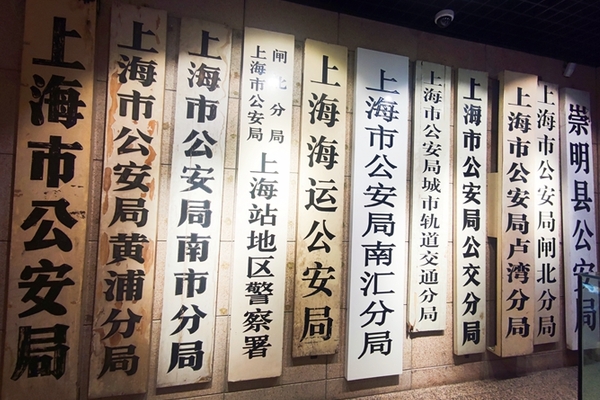 上海市公安局
上海市公安局黄浦分局
上海市公安局南市分局
上海市公安局
闸北分局
上海站地区警察署
上海海运公安局
上海市公安局南汇分局
上海市公安局城市轨道交通分局
上海市公安局公交分局
上海市公安局卢湾分局
上海市公安局闸北分局
崇明县公安局